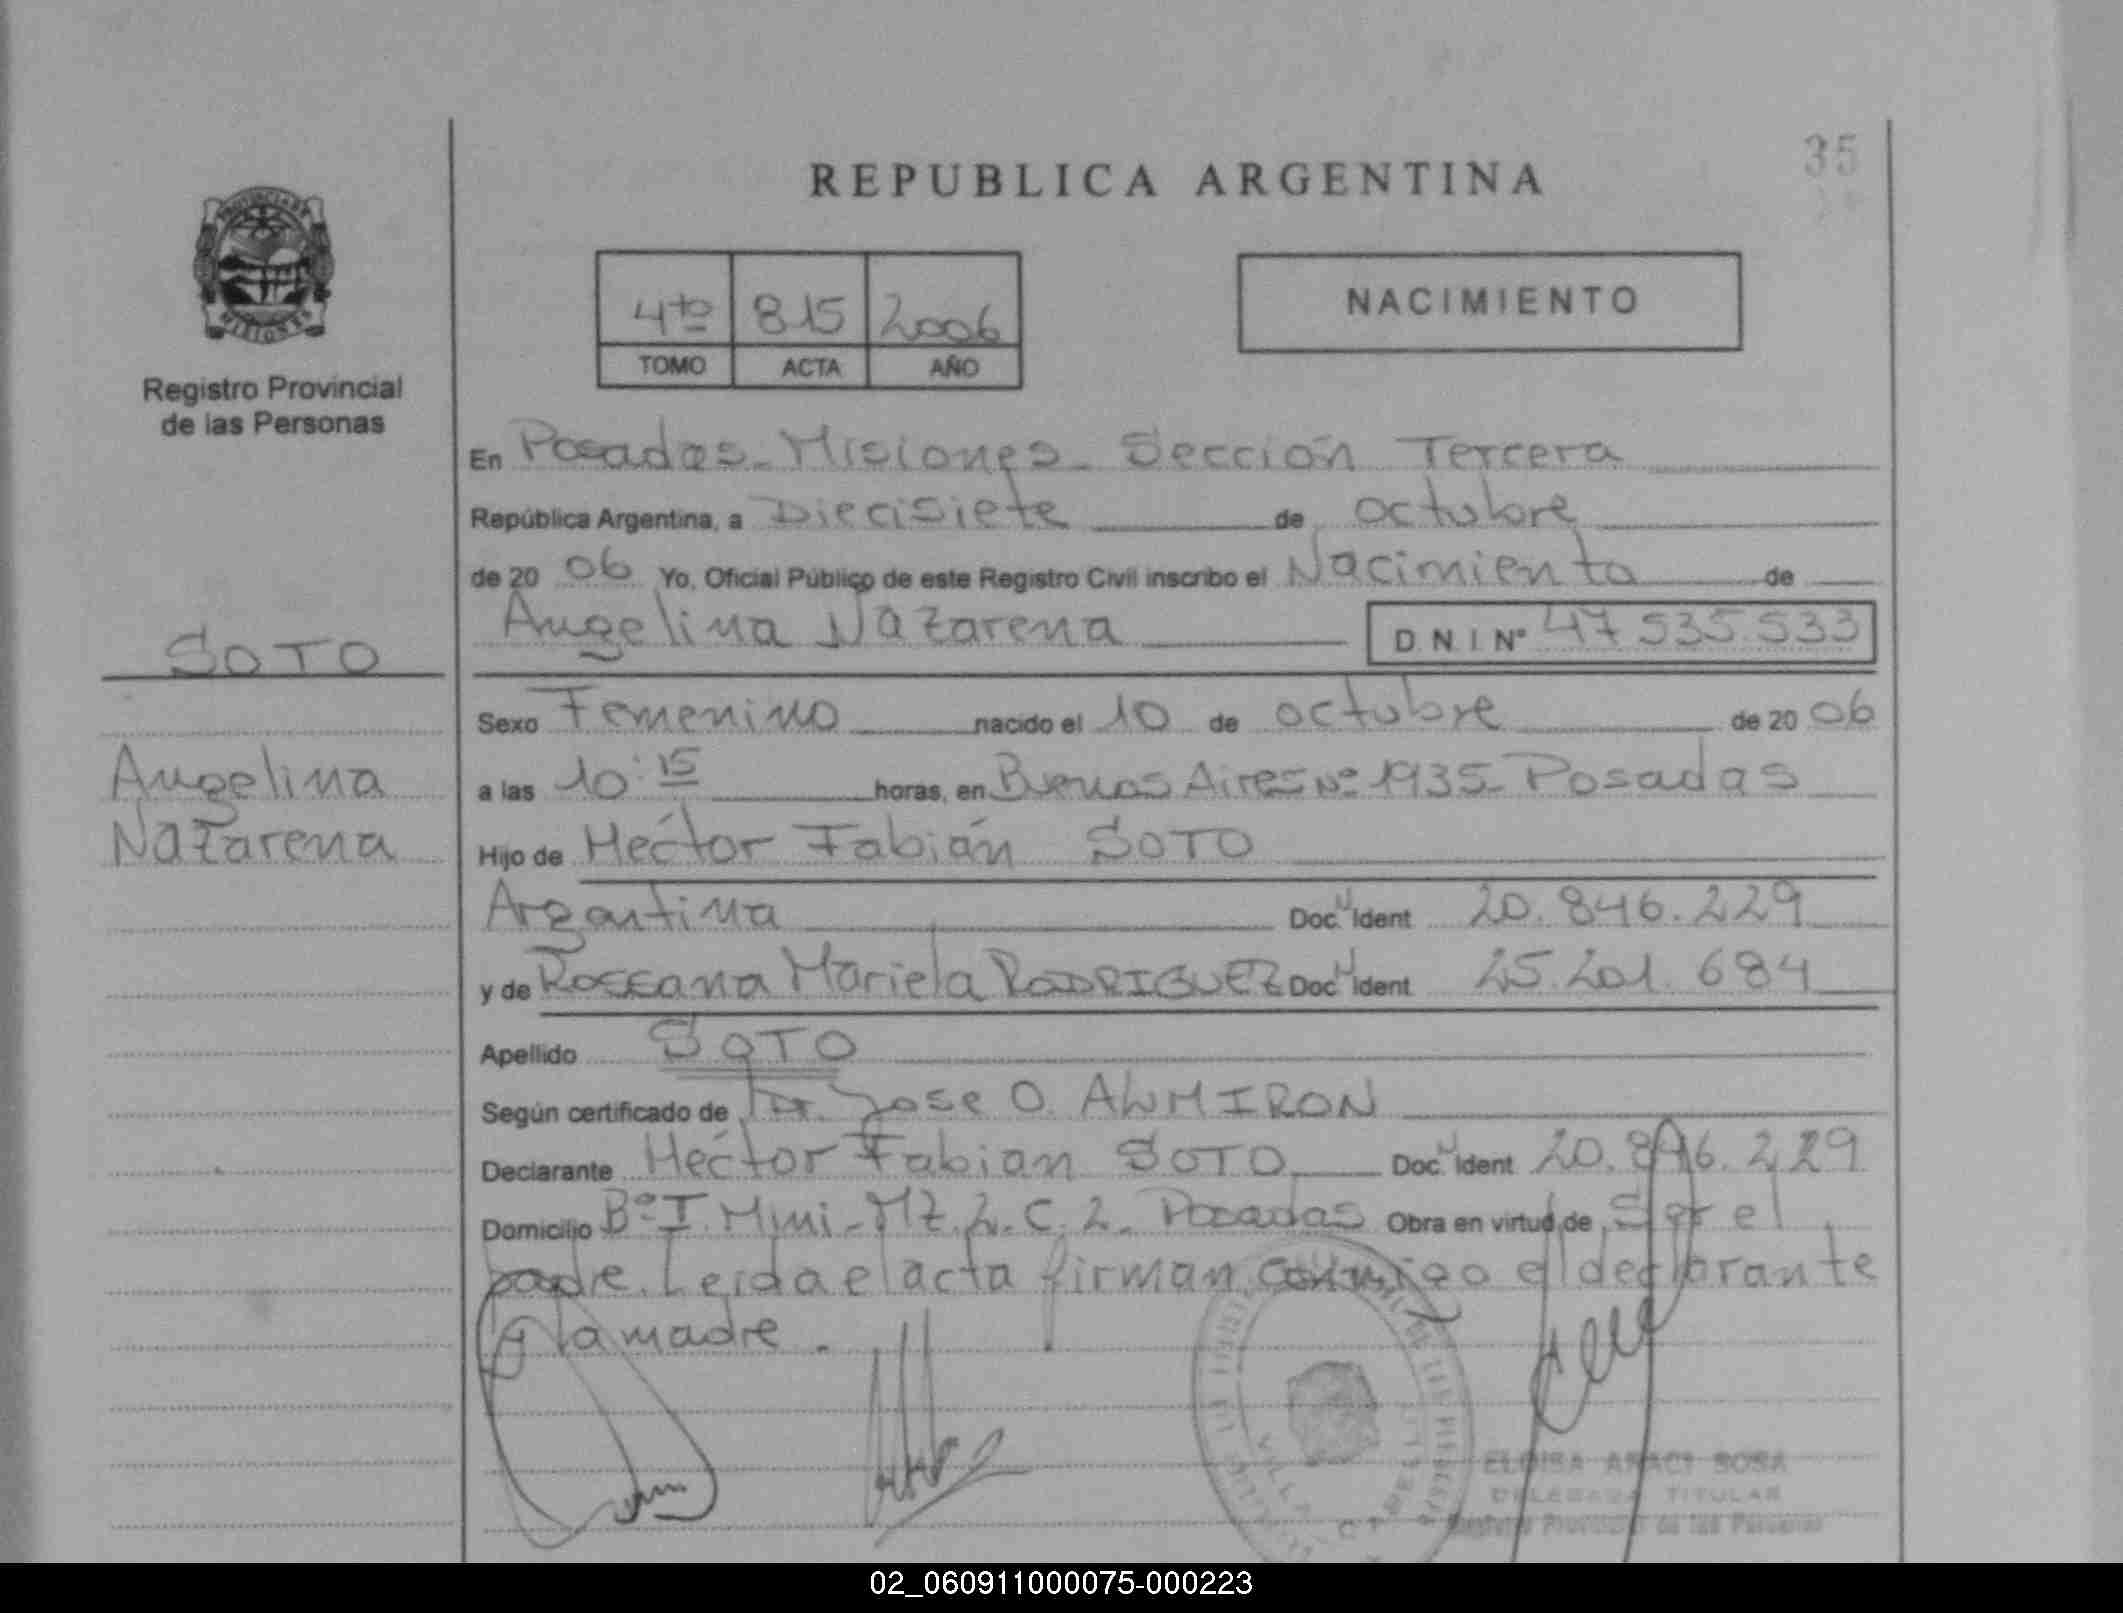 35
REPUBLICA ARGENTINA
PROVINCIA DE
MISIONES
Registro Provincial
de las Personas
4to 815 2006
TOMO ACTA AÑO
NACIMIENTO
En Posadas - Misiones - Sección Tercera
República Argentina, a Diecisiete de octubre
de 20 06 Yo, Oficial Público de este Registro Civil inscribo el Nacimiento de
Angelina Nazarena D.N.I. N° 47 535.533
SOTO
Angelina
Nazarena
Sexo Femenino nacido el 10 de octubre de 20 06
a las 10:15 horas, en Buenos Aires Nº 1935 - Posadas
Hijo de Héctor Fabián SOTO
Argentina Doc. Ident 20.846.229
y de Rossana Mariela RODRIGUEZ Doc. Ident 25.201.684
Apellido SOTO
Según certificado de Dr. Jose O. ALMIRON
Declarante Héctor Fabian SOTO Doc. Ident 20.846.229
Domicilio Bº I. Mini - Mz. 2. C. 2. Posadas Obra en virtud de Ser el
padre. Leida el acta firman conmigo el declarante
y la madre.
VILLA CABELLO
ELOISA ARACI SOSA
DELEGADA TITULAR
Registro Provincial de las Personas
02_060911000075-000223